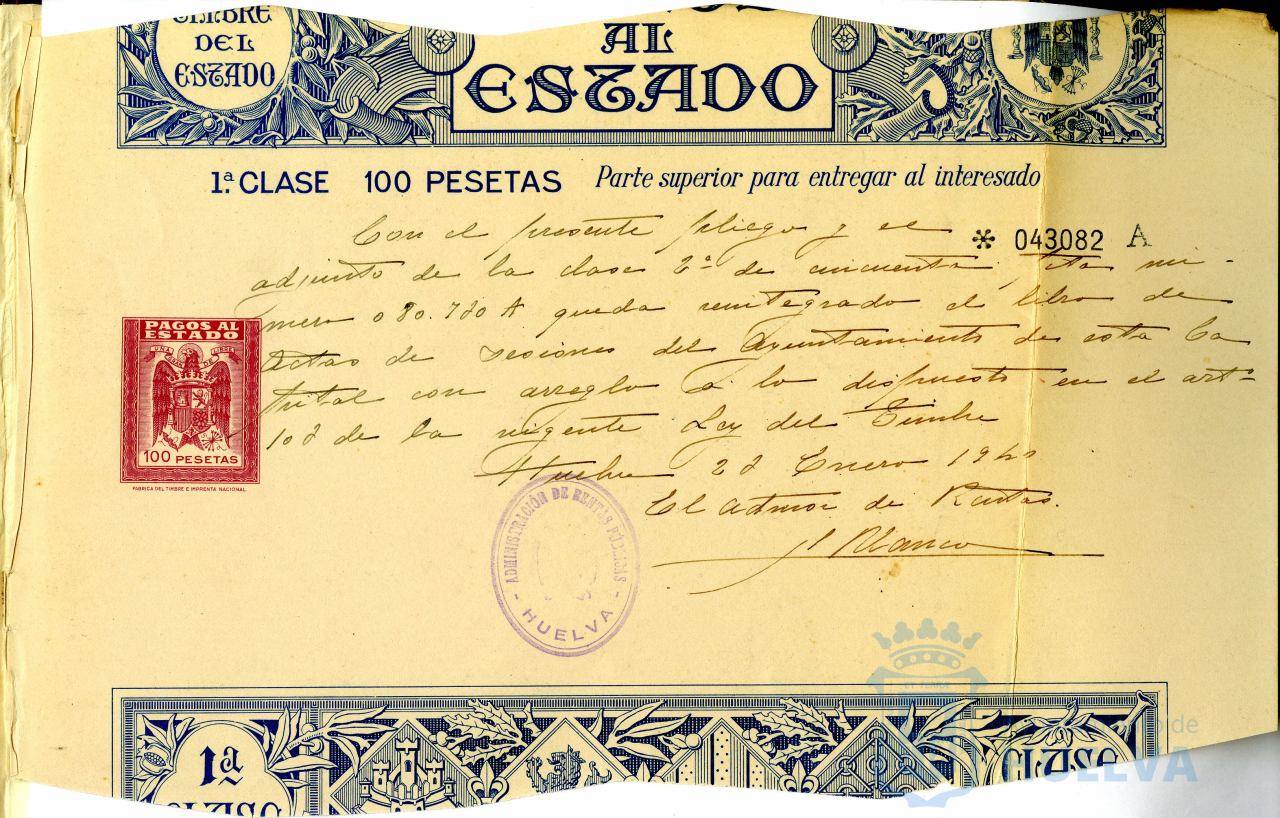 TIMBRE
DEL
ESTADO
AL
ESTADO
1.ª CLASE 100 PESETAS Parte superior para entregar al interesado
Con el presente pliego y el
* 043082 A
adjunto de la clase 2ª de cincuenta ptas nu-
mero 080.720 A queda reintegrado el libro de
Actas de sesiones del Ayuntamiento de esta Ca
pital con arreglo a lo dispuesto en el artº
102 de la vigente Ley del Timbre
Huelva 22 Enero 194
El Admor de Rentas.
Blanco
PAGOS AL
ESTADO
UNA GRANDE LIBRE
100 PESETAS
FABRICA DEL TIMBRE E IMPRENTA NACIONAL
ADMINISTRACIÓN DE RENTAS PÚBLICAS
- HUELVA -
1ª
CLASE
CLASE
de
HUELVA